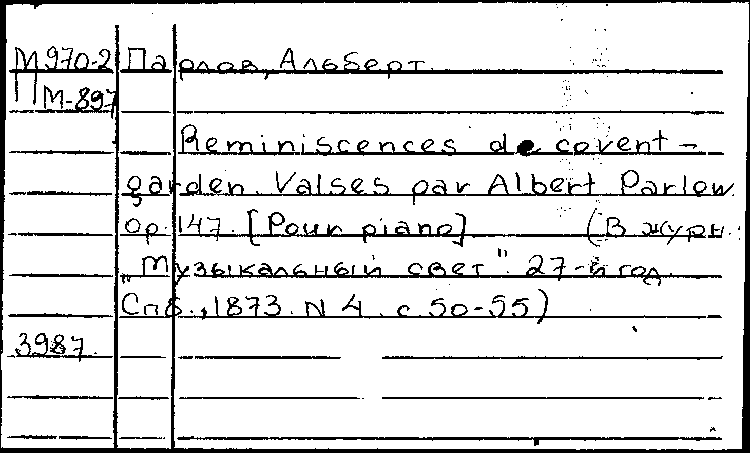 М970-2 Парлов, Альберт.
П М-897
Reminiscences de covent-
garden. Valses par Albert Parlow.
Op. 147. [Pour piano] (В журн.
„Музыкальный свет". 27-й год
Спб., 1873. N 4. с. 50-55)
3987.